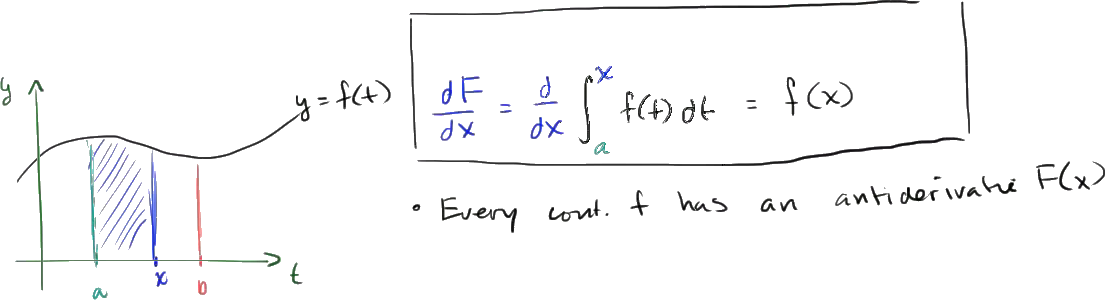 y
y = f(t)
dF/dx = d/dx ∫_a^x f(t) dt = f(x)
• Every cont. f has an antiderivative F(x)
a x b t